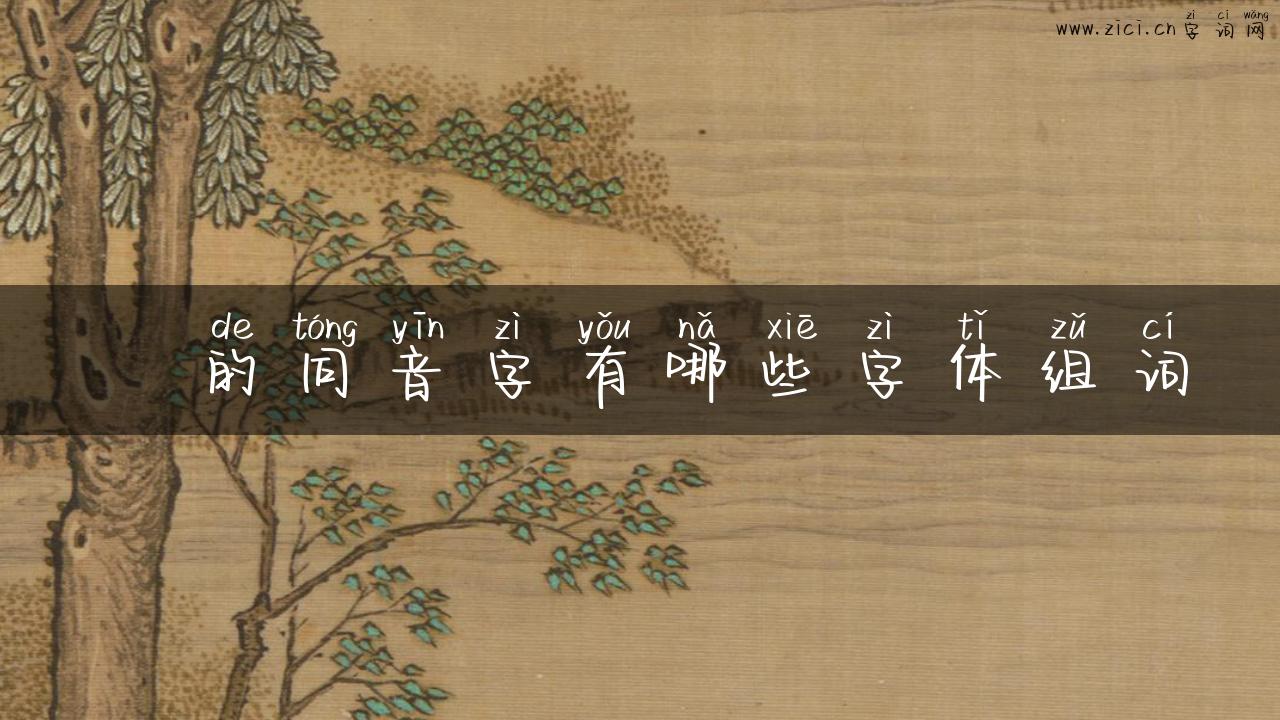 zì cí wǎng
www.zici.cn 字词网
de tóng yīn zì yǒu nǎ xiē zì tǐ zǔ cí
的同音字有哪些字体组词